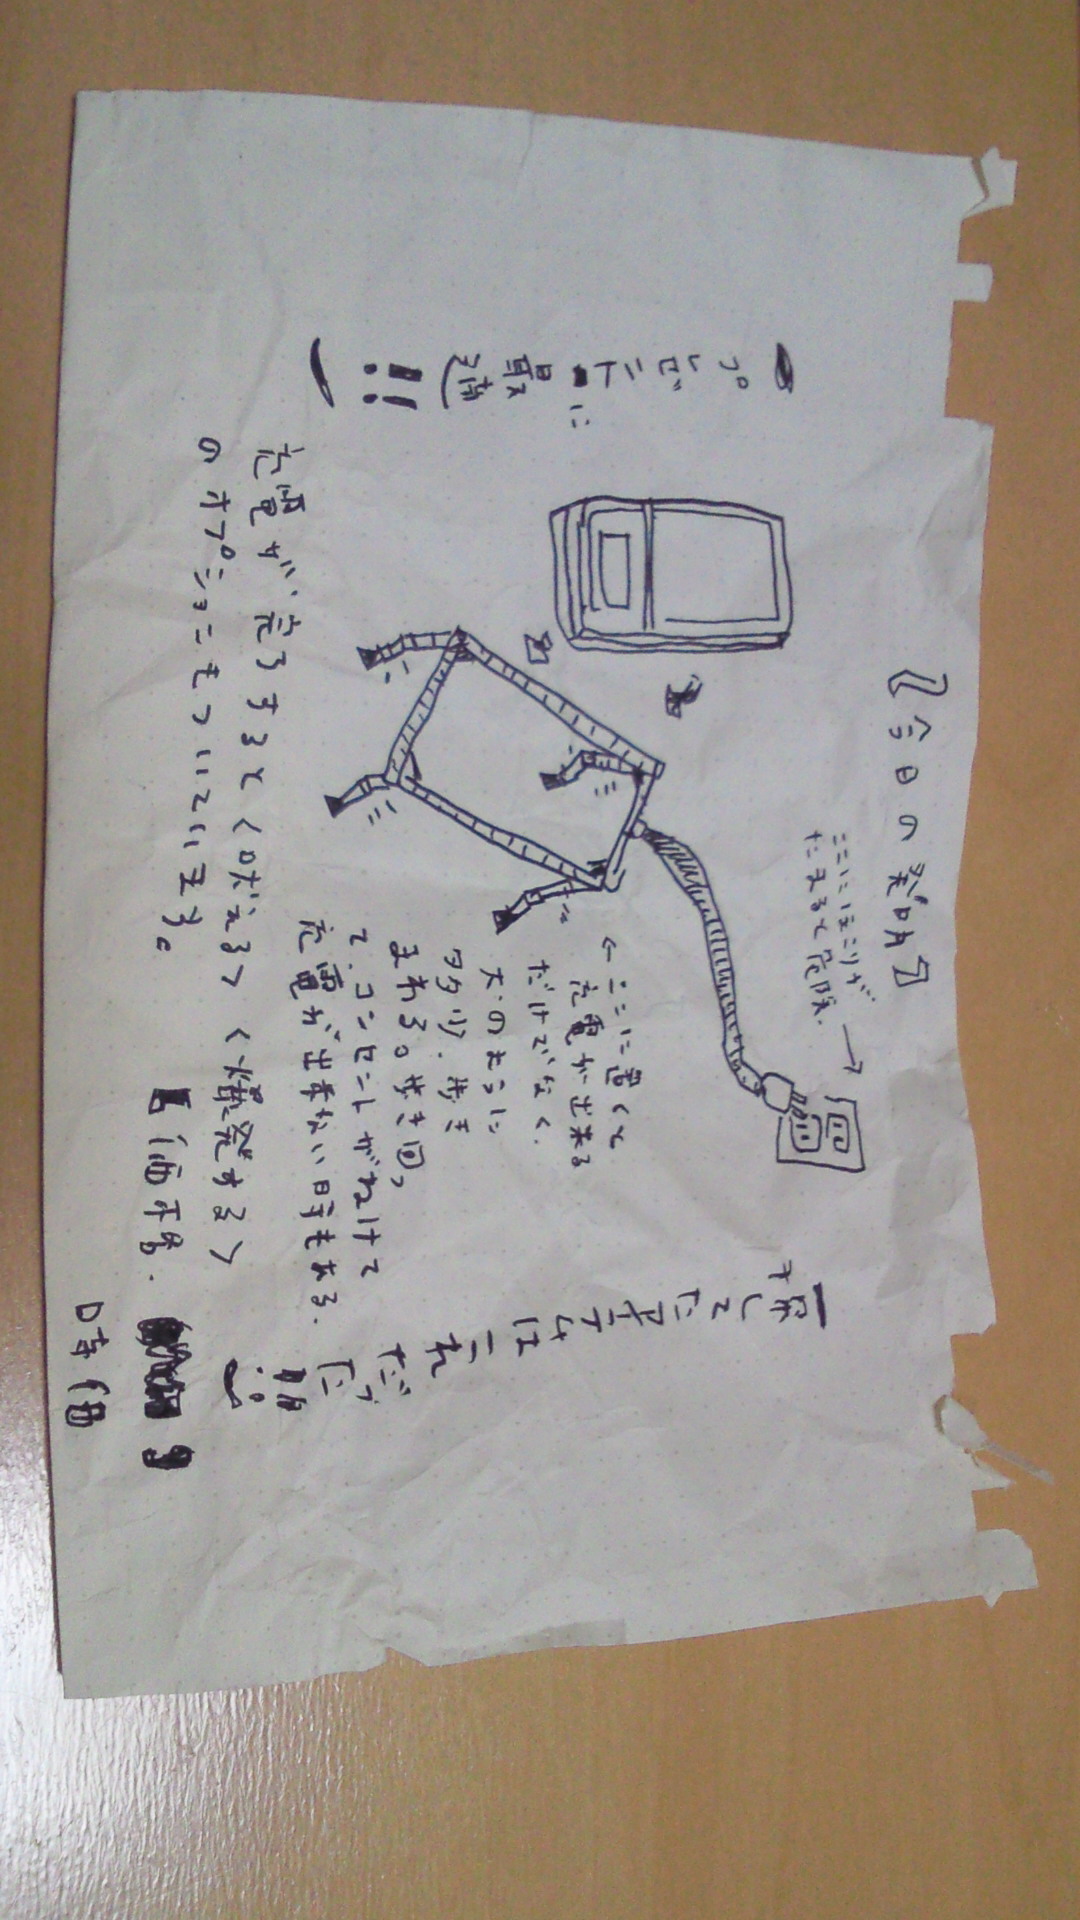 『今日の発明』
ここにほこりが
たまると危険. →
プレゼントに最適!!
←ここに置くと
充電が出来る
だけでなく、
犬のように
多少、歩き
まわる。歩き回っ
て、コンセントがぬけて
充電が出来ない時もある.
探してたアイテムはこれだった!!
充電が完了すると〈吠える〉〈爆発する〉
のオプションもついています。
価格.
時価